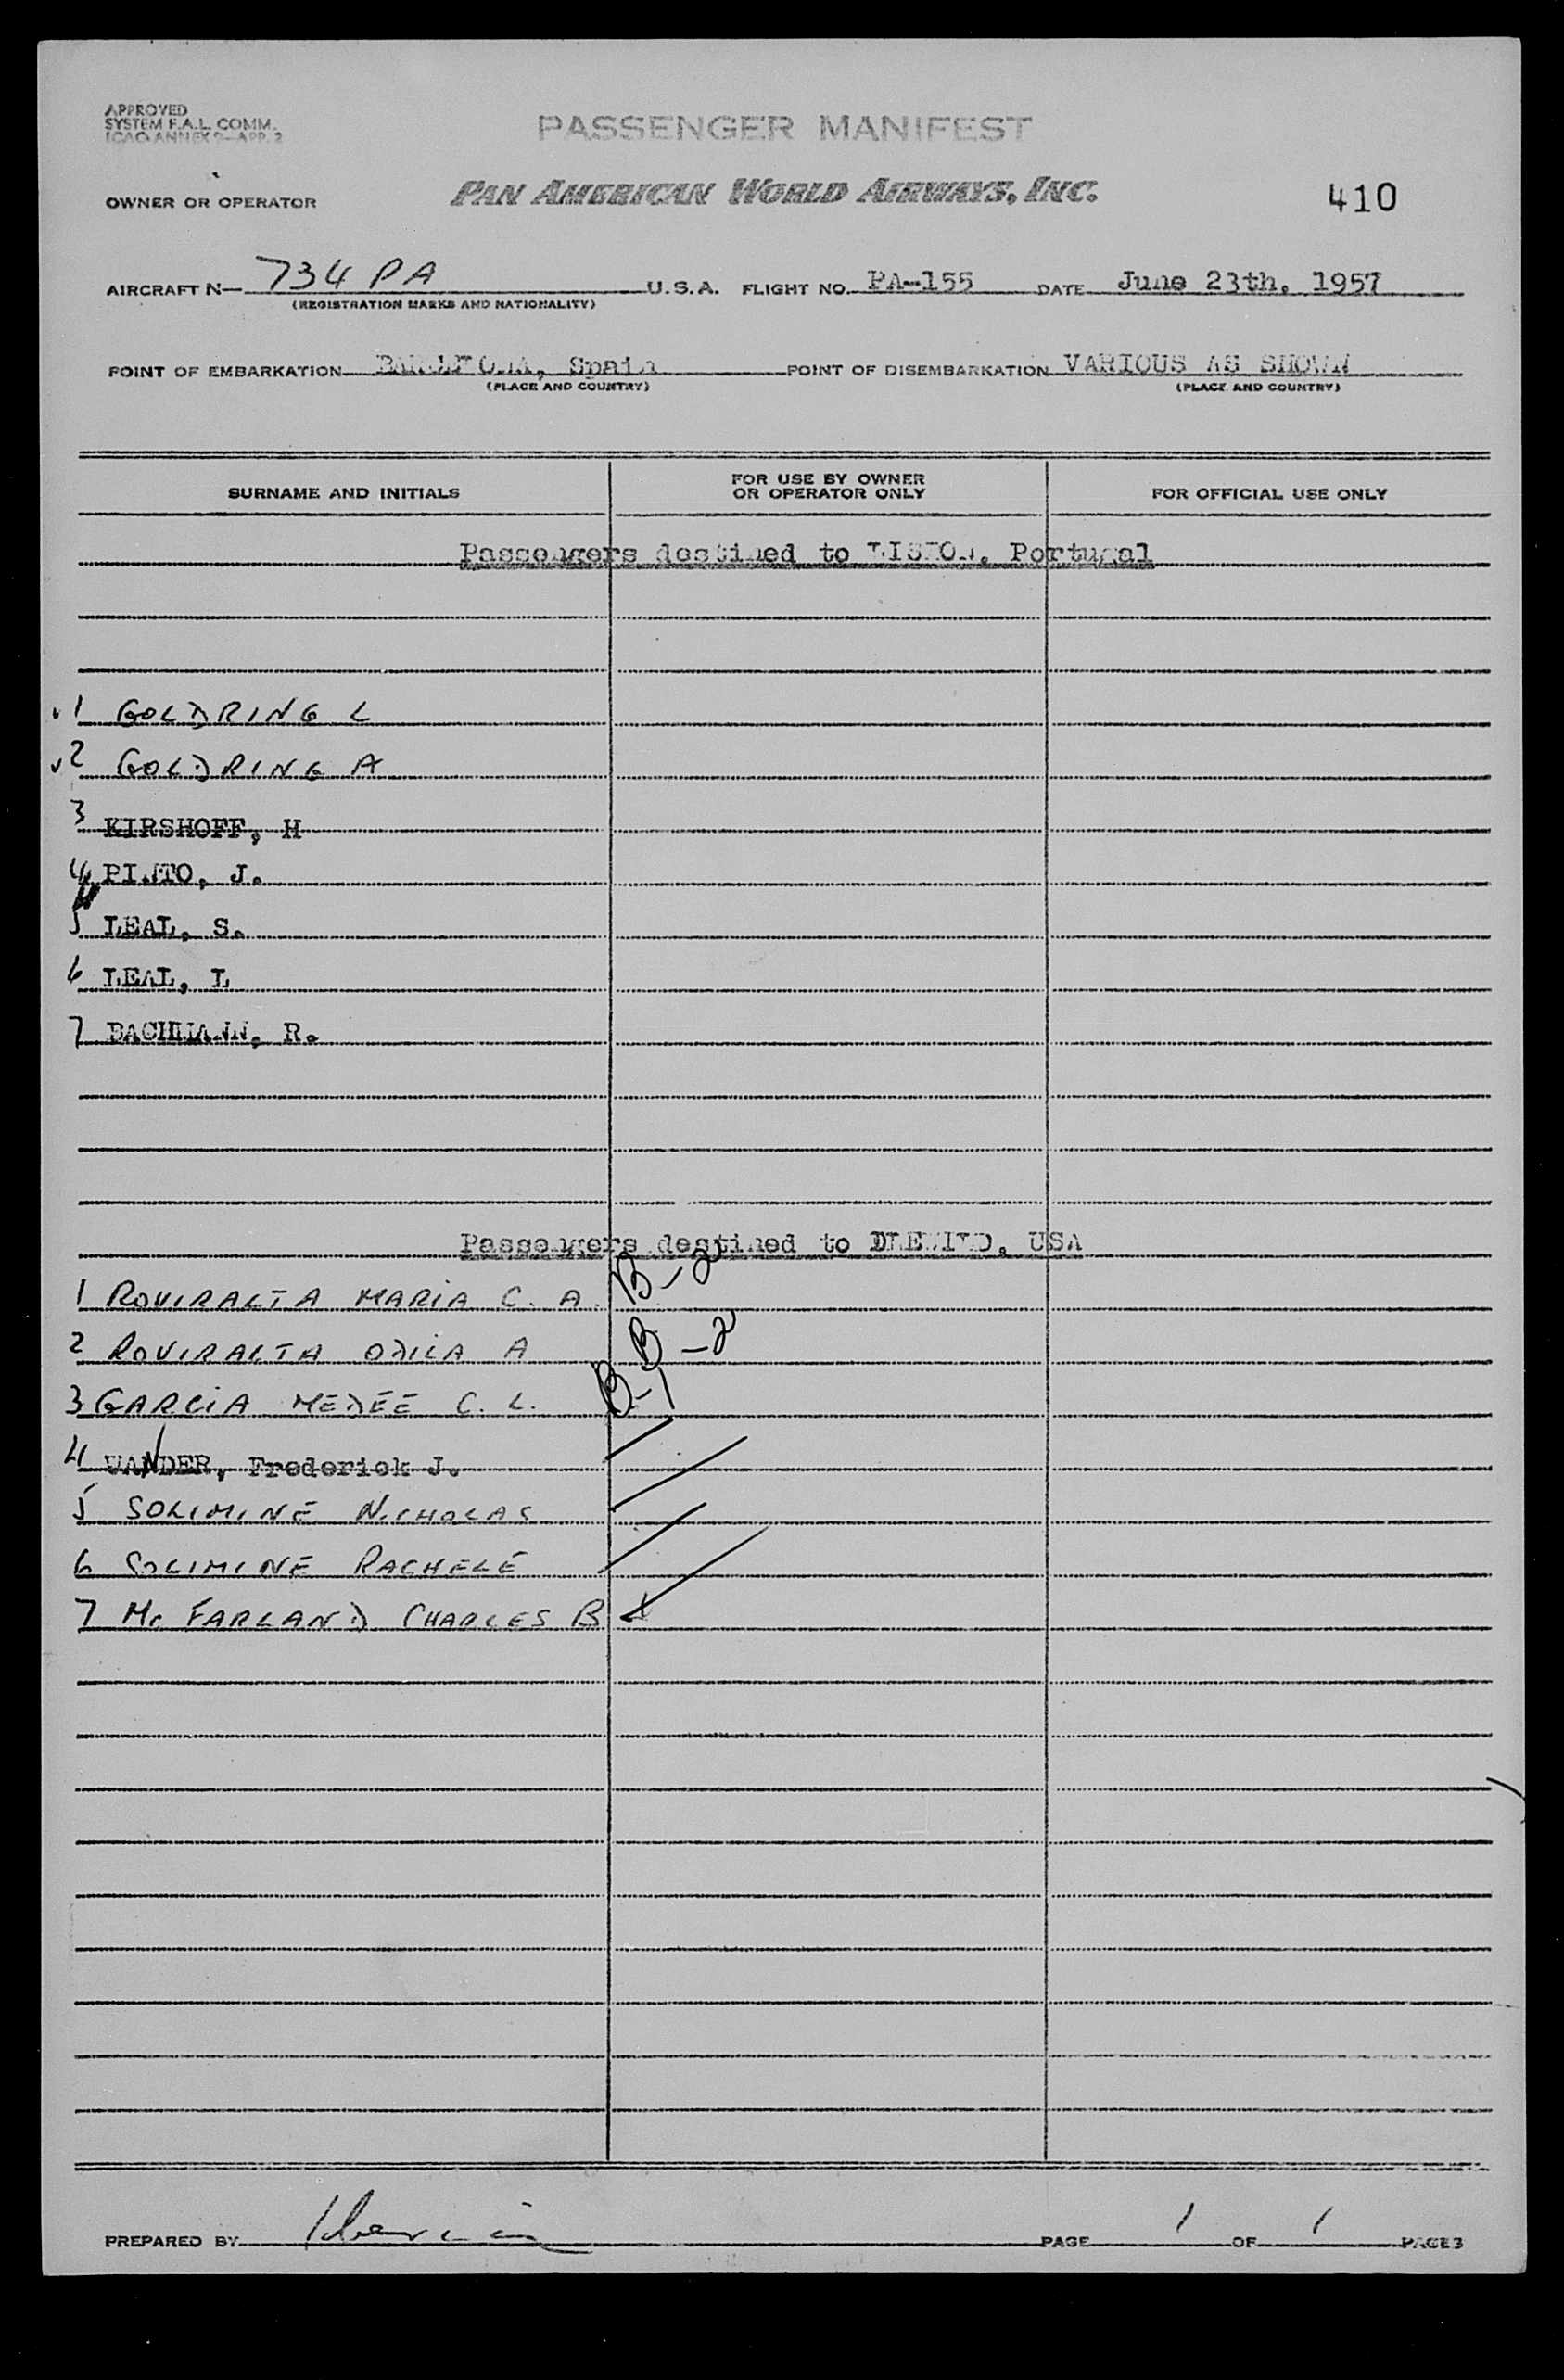 APPROVED
SYSTEM F.A.L. COMM.
ICAO ANNEX 9—APP. 2
PASSENGER MANIFEST
OWNER OR OPERATOR PAN AMERICAN WORLD AIRWAYS, INC. 410
AIRCRAFT N— 734 PA U.S.A. FLIGHT NO. PA-155 DATE June 23th, 1957
(REGISTRATION MARKS AND NATIONALITY)
POINT OF EMBARKATION BARCELONA, Spain POINT OF DISEMBARKATION VARIOUS AS SHOWN
(PLACE AND COUNTRY) (PLACE AND COUNTRY)
SURNAME AND INITIALS FOR USE BY OWNER OR OPERATOR ONLY FOR OFFICIAL USE ONLY
Passengers destined to LISBON, Portugal
1 GOLDRING L
2 GOLDRING A
3 KIRSHOFF, H
4 PINTO, J.
5 LEAL, S.
6 LEAL, L
7 BACHMANN, R.
Passengers destined to IDLEWILD, USA
1 ROVIRALTA MARIA C. A. B-2
2 ROVIRALTA ODILA A B-2
3 GARCIA MEDEE C. L. B-1
4 WANDER, Frederick J.
5 SOLIMINE NICHOLAS
6 SOLIMINE RACHELE
7 Mc FARLAND CHARLES B
PREPARED BY PAGE 1 OF 1 PAGES